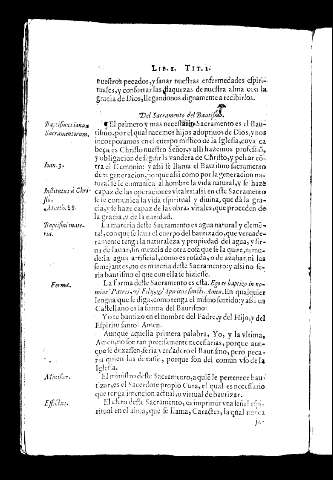 LIB. I. TIT. I.
nuestros pecados, y sanar nuestras enfermedades espiri-
tuales, y confortar las flaquezas de nuestra alma con la
gracia de Dios, llegandonos dignamente a recibirlos.
Del Sacramento del Bautismo.
El primero y mas necessario Sacramento es el Bau-
tismo, por el qual nacemos hijos adoptiuos de Dios, y nos
incorporamos en el cuerpo mistico de la Iglesia, cuya ca
beça es Christo nuestro Señor, y alli hazemos profession,
y obligacion de seguir la vandera de Christo, y pelear cō-
tra el Demonio: y assi se llama el Bautismo Sacramento
de regeneracion, porque assi como por la generacion na-
tural se le comunica al hombre la vida natural, y se haze
capaz de las operaciones vitales: assi en este Sacramento
se le comunica la vida espiritual y diuina, que da la gra-
cia, y se haze capaz de las obras vitales, que proceden de
la gracia, y de la caridad.
La materia deste Sacramento es agua natural y elemē-
tal, con que se laue el cuerpo del bautizado, que verdade-
ramente tenga la naturaleza y propiedad del agua, y sir-
ua de lauar, sin mezcla de otra cosa que se la quite, porque
la agua artificial, como es rosada, o de azahar, ni las
semejantes, no es materia deste Sacramento: y assi no se-
ria bautismo el que con ella se hiziesse.
La Forma deste Sacramento es esta. Ego te baptizo in no-
mine Patris, & Filij, & Spiritus sancti. Amen. En qualquier
lengua que se diga, como tenga el mismo sentido: y assi en
Castellano es la forma del Bautismo:
Yo te bautizo en el nombre del Padre, y del Hijo, y del
Espiritu santo. Amen.
Aunque aquella primera palabra, Yo, y la vltima,
Amen, no son tan precissamente necessarias, porque aun-
que se dexassen, seria verdadero el Bautismo, pero peca-
ra quien las dexasse, porque son del comun vso de la
Iglesia.
El ministro deste Sacramento, a quiē le pertenece bau-
tizar, es el Sacerdote propio Cura, el qual es necessario
que tenga intencion actual, o virtual de bautizar.
El efeto deste Sacramento, es imprimir vna señal espi-
ritual en el alma, que se llama, Caracter, la qual nunca
Ioan. 3.
Forma.
Minister.
Effectus.